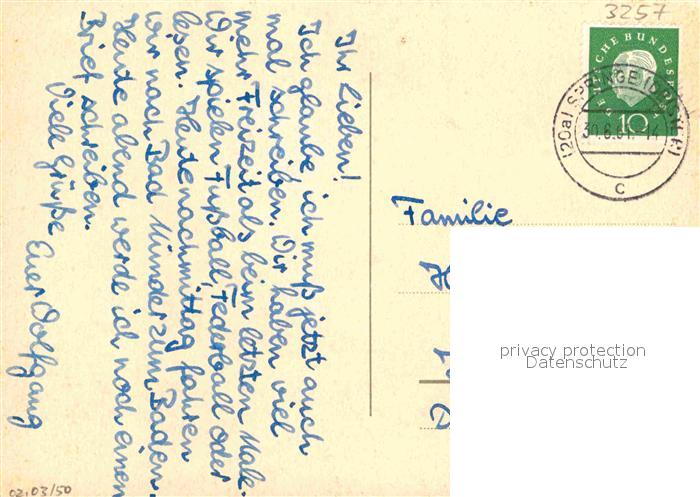 Ihr Lieben!
Ich glaube, ich muß jetzt auch
mal schreiben. Wir haben viel
mehr Freizeit als beim letzten Male.
Wir spielen Fußball, Federball oder
lesen. Heute nachmittag fahren
wir nach Bad Münder zum Baden.
Heute abend werde ich noch einen
Brief schreiben.
Viele Grüße
Euer Wolfgang
3257
DEUTSCHE BUNDESPOST
10
(20a) SPRINGE (DEISTER)
30.6.61.-14
c
Familie
privacy protection
Datenschutz
02.03/50